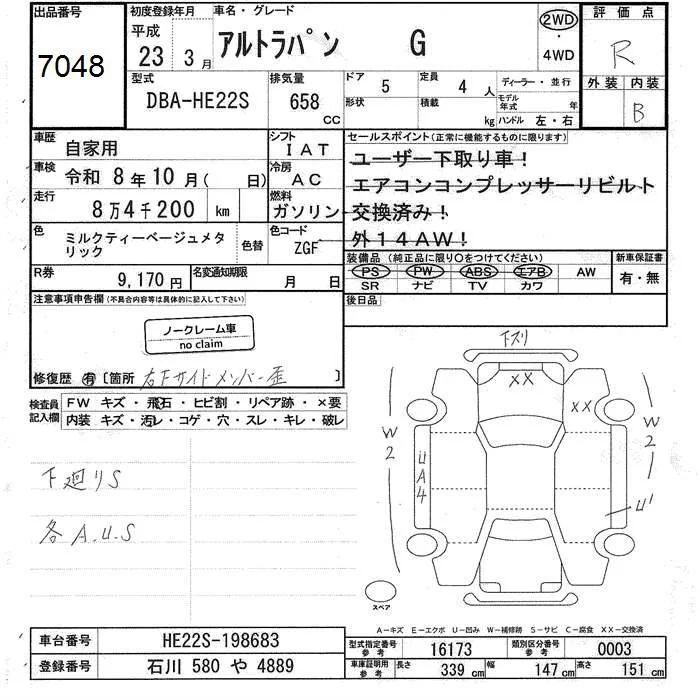 出品番号
7048
初度登録年月
平成
23 3月
車名・グレード
アルトラパン G
2WD
・
4WD
評価点
R
外装 内装
B
型式
DBA-HE22S
排気量
658
CC
ドア 5
形状
定員 4 人
積載 kg
ディーラー・並行
モデル年式 年
ハンドル 左・右
車歴 自家用
シフト IAT
車検 令和 8年10月( 日)
冷房 AC
走行 8万4千200 km
燃料 ガソリン
色 ミルクティーベージュメタリック
色替
色コード ZGF
R券 9,170円
名変通知期限 月 日
セールスポイント(正常に機能するものに限ります)
ユーザー下取り車!
エアコンコンプレッサーリビルト
交換済み!
外14AW!
装備品(純正品に限り○をつけてください)
PS PW ABS エアB AW
SR ナビ TV カワ
新車保証書
有・無
後日品
注意事項申告欄(不具合内容等は具体的に記入して下さい)
ノークレーム車
no claim
修復歴 有 [箇所 右Fサイドメンバー歪 ]
検査員記入欄
FW キズ・飛石・ヒビ割・リペア跡・×要
内装 キズ・汚レ・コゲ・穴・スレ・キレ・破レ
下廻りS
各A.U.S
下スリ
XX
XX
W2
UA4
W2
U'
スペア
A-キズ E-エクボ U-凹み W-補修跡 S-サビ C-腐食 XX-交換済
車台番号 HE22S-198683
登録番号 石川 580 や 4889
型式指定番号 参考 16173
類別区分番号 参考 0003
車庫証明用 参考 長さ 339 cm 幅 147 cm 高さ 151 cm